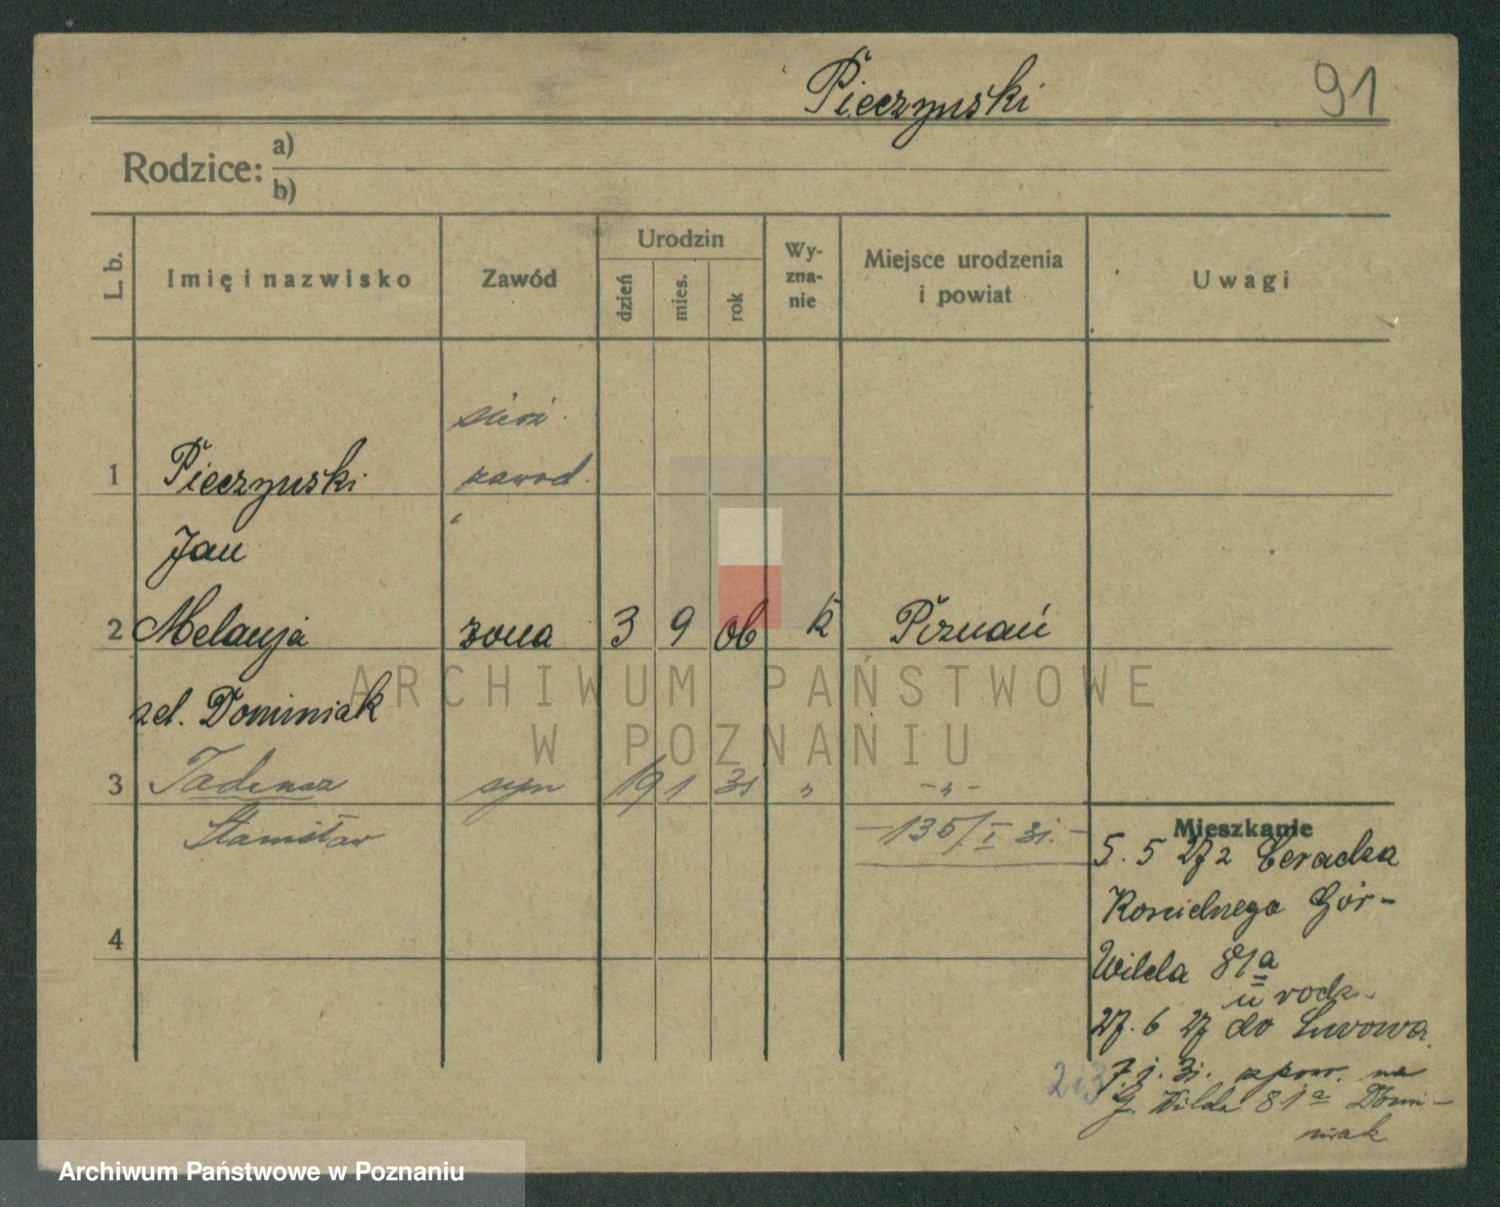 Pieczynski
91
Rodzice: a)
b)
L. b.
Imię i nazwisko
Zawód
Urodzin
dzień
mies.
rok
Wy-
zna-
nie
Miejsce urodzenia
i powiat
Uwagi
zawod.
1 Pieczynski
Jan
2 Melanja żona 3 9 06 K Poznań
zd. Dominiak
3 Tadeusz syn 19 1 31 " -"-
Stanisław -135/I 31.-
4
Mieszkanie
5. 5 27 z Ceradza
Koscielnego Gór-
Wilda 81a
u rodz.
27. 6 27 do Lwowa
7. 1. 31. z pow. na
2 i 3 G. Wilda 81a Domi-
niak
ARCHIWUM PAŃSTWOWE
W POZNANIU
Archiwum Państwowe w Poznaniu